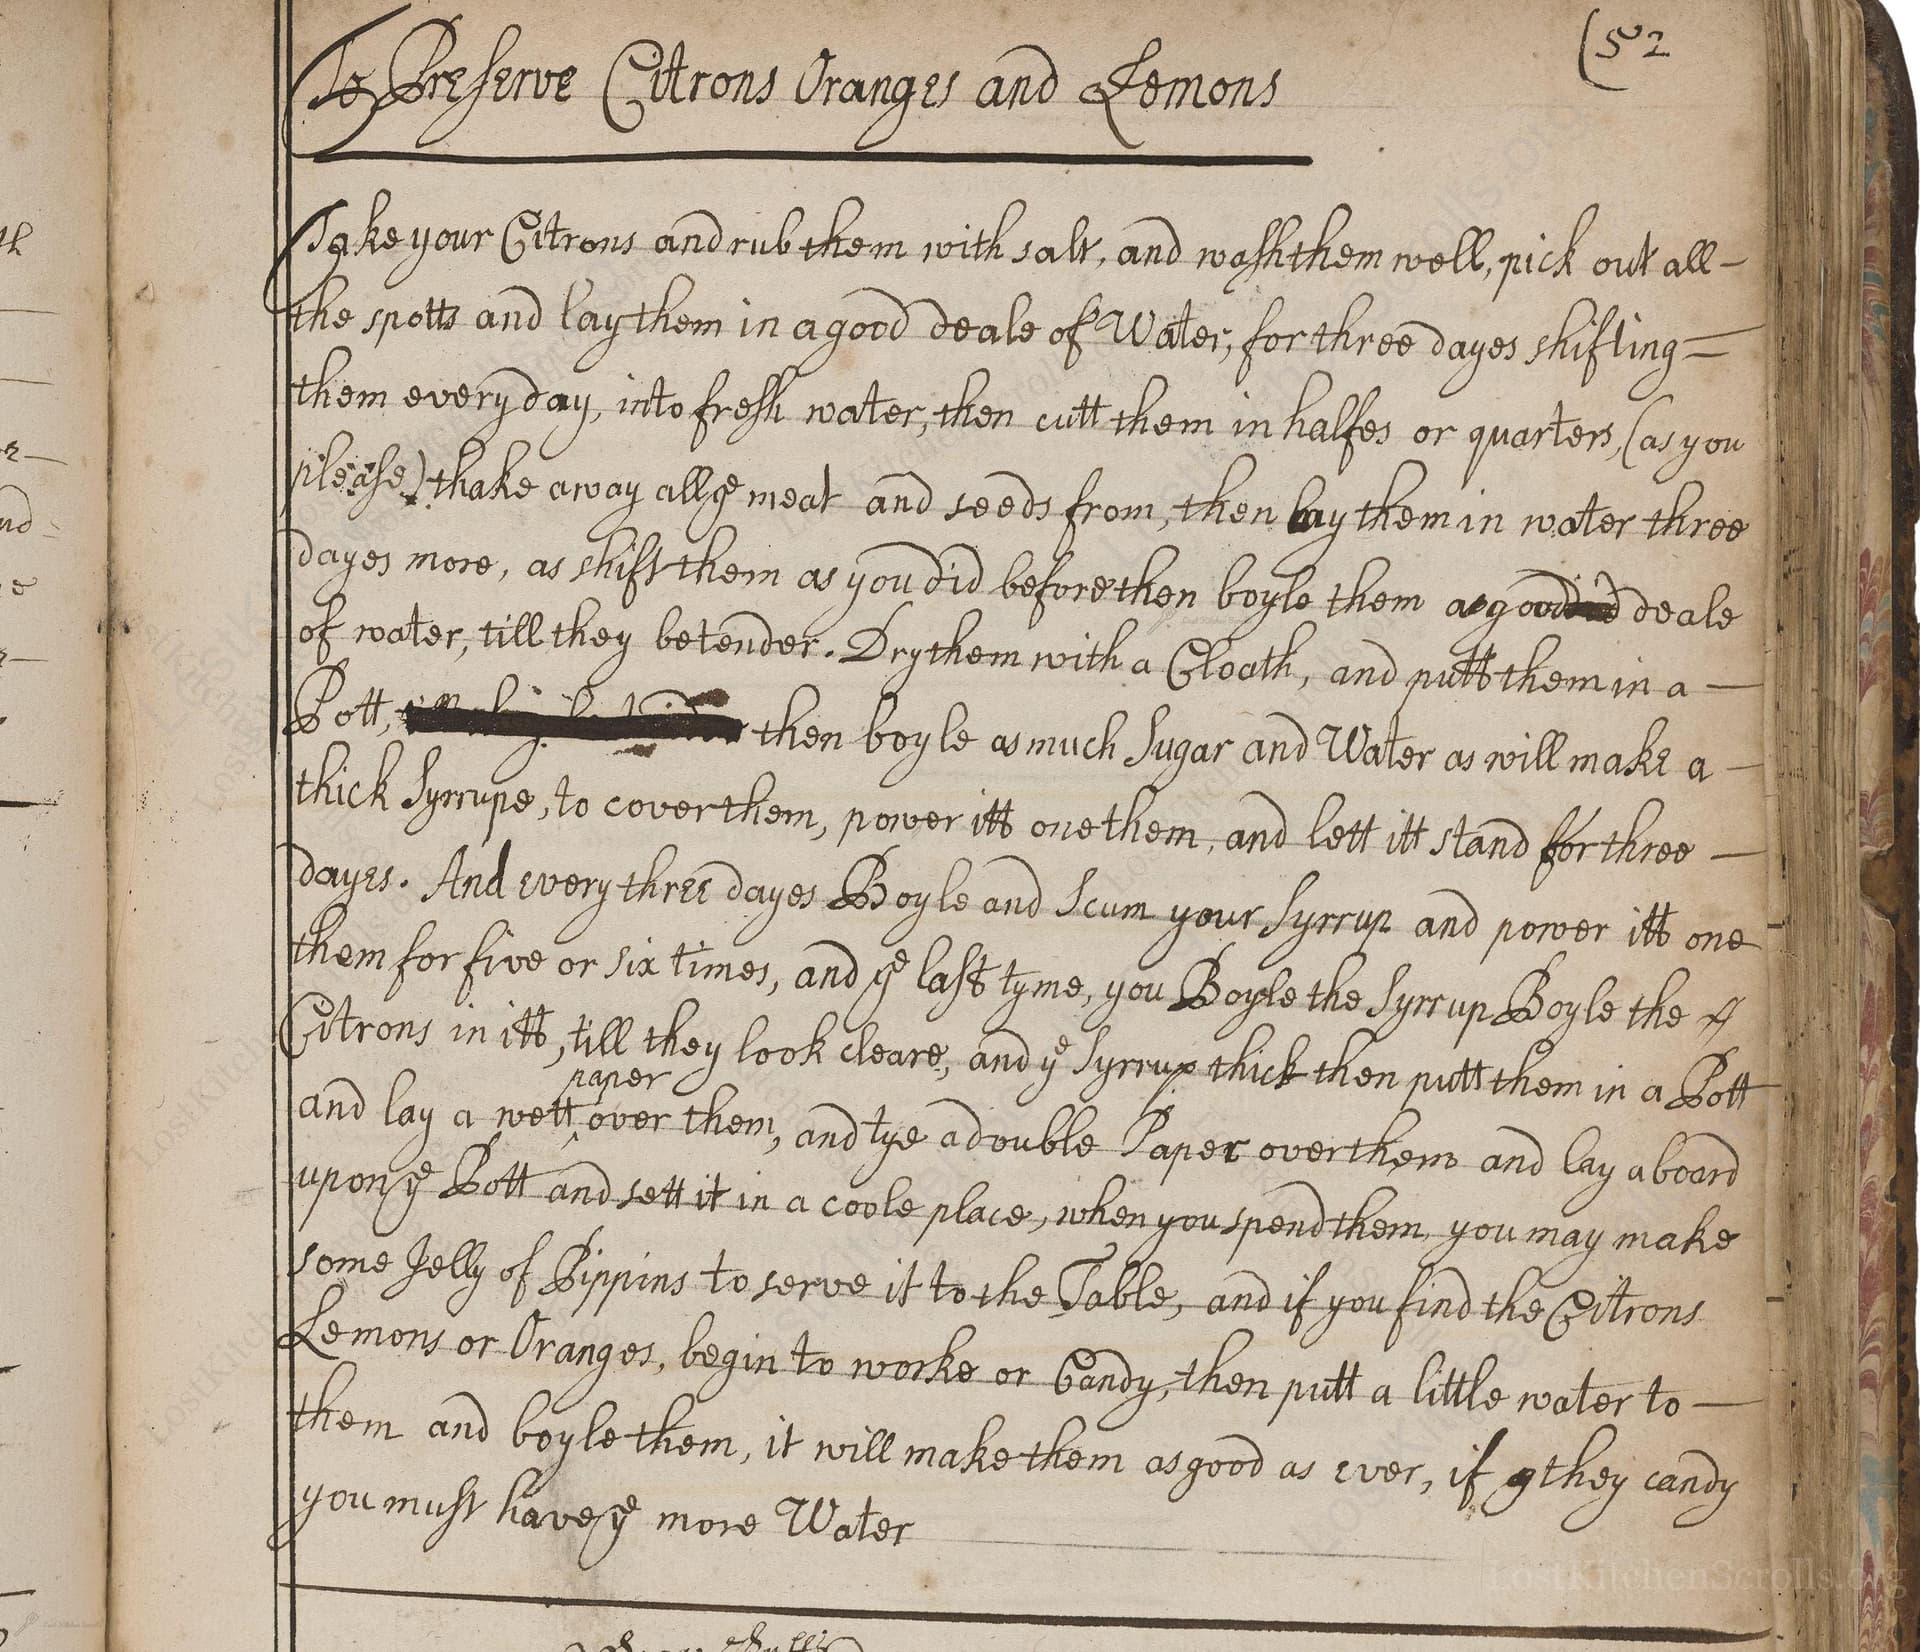 (52
To Preserve Citrons Oranges and Lemons
Take your Citrons and rub them with salt, and wash them well, pick out all -
the spotts and lay them in a good deale of Water, for three dayes shifting =
them every day, into fresh water, then cutt them in halfes or quarters, (as you
please) thake away all ye meat and seeds from, then lay them in water three
dayes more, as shift them as you did before then boyle them a good deale
of water, till they be tender. Dry them with a Cloath, and putt them in a -
Pott, then boyle as much Sugar and Water as will make a -
thick Syrrupe, to cover them, power itt one them, and lett itt stand for three -
dayes. And every three dayes Boyle and Scum your Syrrup and power itt one
them for five or six times, and ye last tyme, you Boyle the Syrrup Boyle the
Citrons in itt, till they look cleare, and ye Syrrup thick then putt them in a Pott
paper
and lay a wett ^ over them, and tye a double Paper over them and lay a board
upon ye Pott and sett it in a coole place, when you spend them, you may make
some Jelly of Pippins to serve it to the Table, and if you find the Citrons
Lemons or Oranges, begin to worke or Candy, then putt a little water to -
them and boyle them, it will make them as good as ever, if they candy
you must have ye more Water
LostKitchenScrolls.org